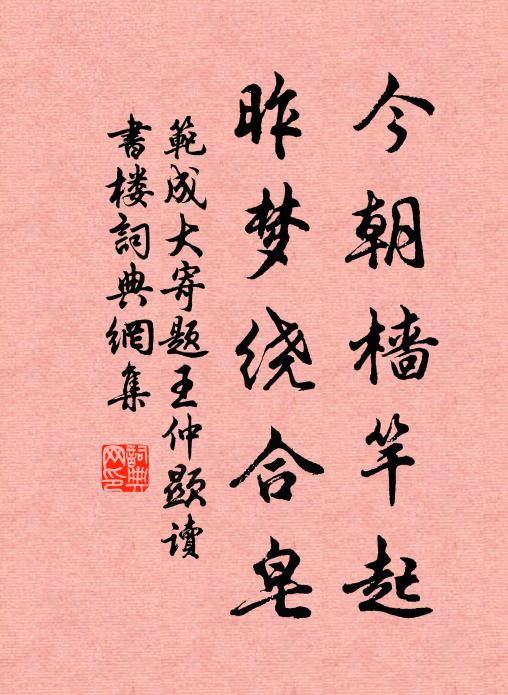 今朝檣竿起
昨梦绕合皂
範成大寄题王仲顕讀
書楼詞典網集
詞典网印